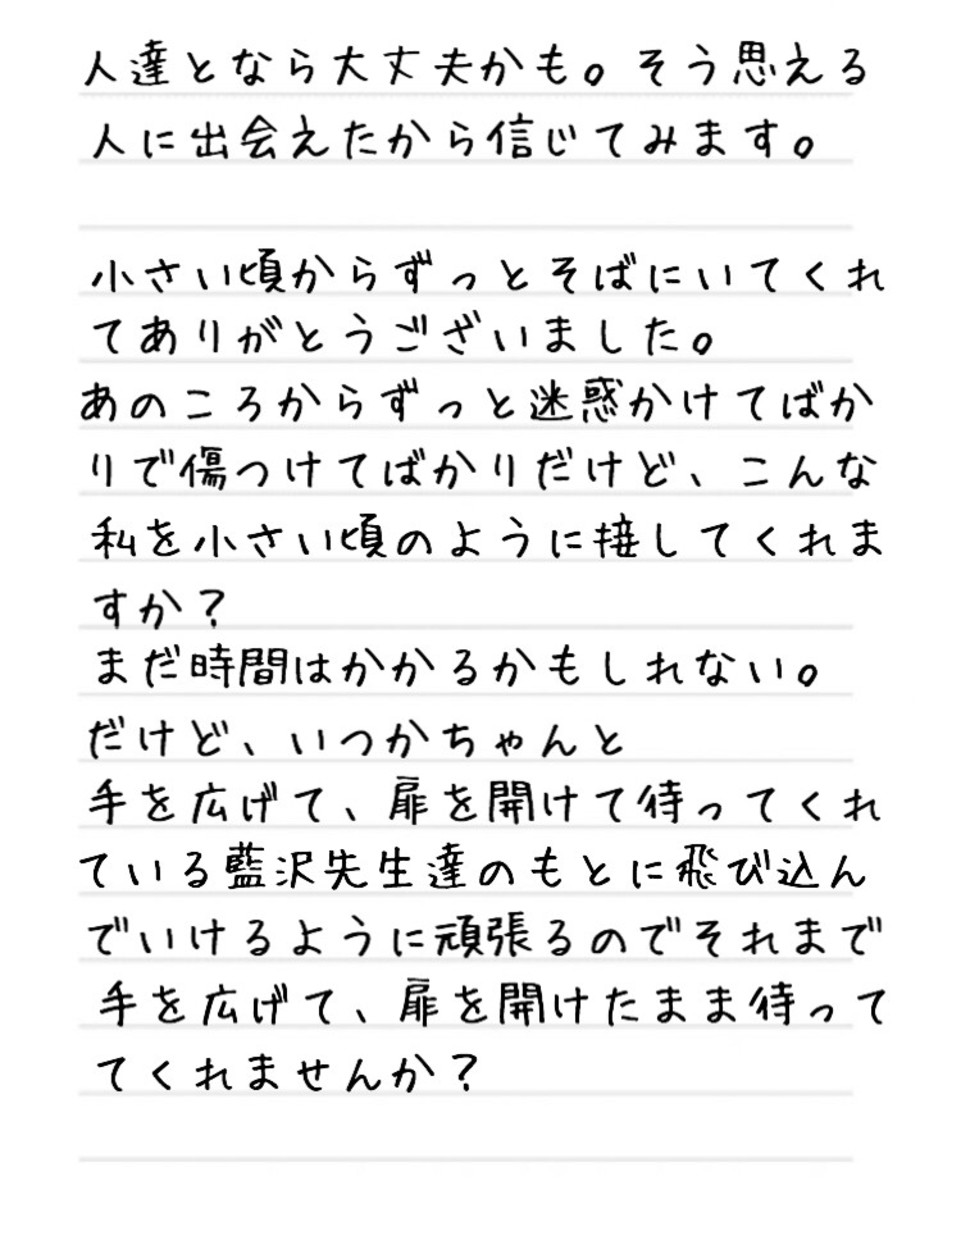 人達となら大丈夫かも。そう思える
人に出会えたから信じてみます。
小さい頃からずっとそばにいてくれ
てありがとうございました。
あのころからずっと迷惑かけてばか
りで傷つけてばかりだけど、こんな
私を小さい頃のように接してくれま
すか？
まだ時間はかかるかもしれない。
だけど、いつかちゃんと
手を広げて、扉を開けて待ってくれ
ている藍沢先生達のもとに飛び込ん
でいけるように頑張るのでそれまで
手を広げて、扉を開けたまま待って
てくれませんか？